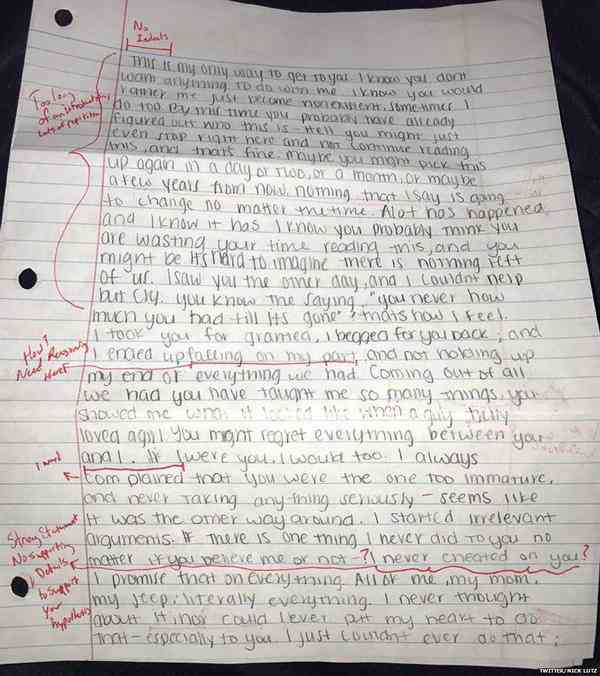 No
Indents
This is my only way to get to you. I know you dont
want anything to do with me. I know you would
rather me just become nonexistent, sometimes I
do too. By this time you probably have already
figured out who this is - Hell you might just
even stop right here and not continue reading
this, and thats fine. maybe you might pick this
up again in a day or two, or a month, or maybe
a few years from now. nothing that I say is going
to change no matter the time. Alot has happened,
and I know it has I know you probably think you
are wasting your time reading this, and you
might be Its hard to imagine there is nothing left
of us. I saw you the other day, and I couldnt help
but cry. you know the saying, "you never how
much you had till its gone"? thats how I feel.
I took you for granted, I begged for you back, and
I ended up falling on my part, and not holding up
my end of everything we had. Coming out of all
we had you have taught me so many things, you
showed me what it looked like when a guy truly
loved a girl. You might regret everything between you
and I. If I were you, I would too. I always
complained that you were the one too immature,
and never taking any-thing seriously - seems like
It was the other way around. I started irrelevant
arguments. If there is one thing I never did to you no
matter if you believe me or not -? I never cheated on you?
I promise that on everything. All of me, my mom,
my step; literally everything. I never thought
about it nor could I ever put my heart to do
that - especially to you. I just couldnt ever do that;
Too long
of an introduction
Lots of repetition
How?
Need Reasoning
Here!
Strong Statement
No supporting
Details
to support
your
hypothesis
TWITTER/NICK LUTZ